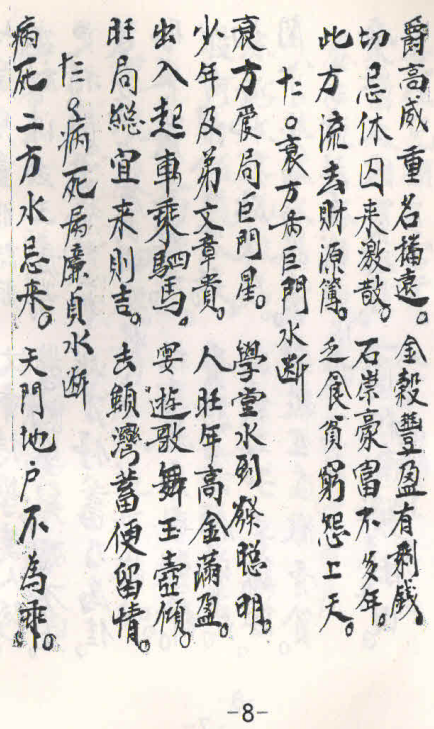 爵高威重名播遠。金穀豐盈有剩錢。
切忌休囚來激散。石崇豪富不多年。
此方流去財源簿。乏食貧窮怨上天。
十二。衰方為巨門水斷
衰方愛局巨門星。學堂水到發聰明。
少年及弟文章貴。人旺年高金滿盈。
出入起車乘駟馬。宴遊歌舞玉壺傾。
旺局總宜來則吉。去顧灣蓄便留情。
十三。病死為廉貞水斷
病死二方水忌來。天門地户不為乖。
-8-